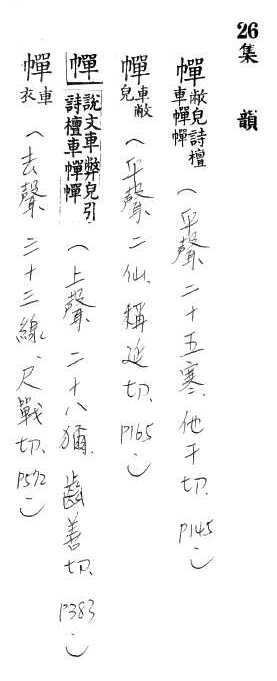 26集韻
幝敝皃詩檀車幝幝(平聲、二十五寒、他干切、P145)
幝車敝皃(平聲、二仙、稱延切、P165)
幝說文車弊皃引詩檀車幝幝(上聲、二十八獮、齒善切、P383)
幝車衣(去聲、三十三線、尺戰切、P572)